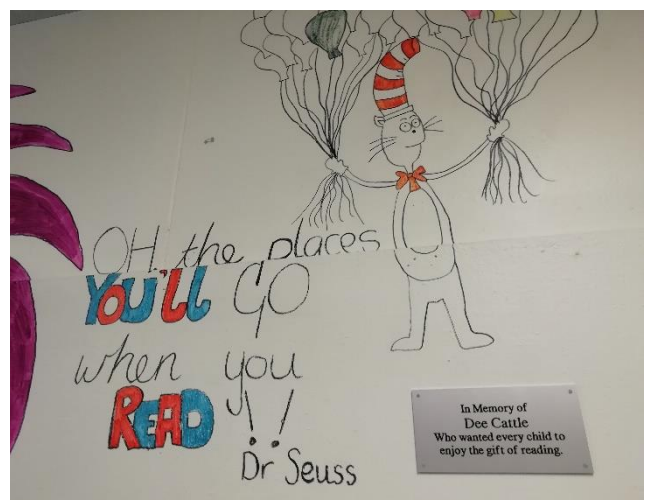 OH, the places
YOU'll GO
when you
READ!!
Dr Seuss
In Memory of
Dee Cattle
Who wanted every child to
enjoy the gift of reading.